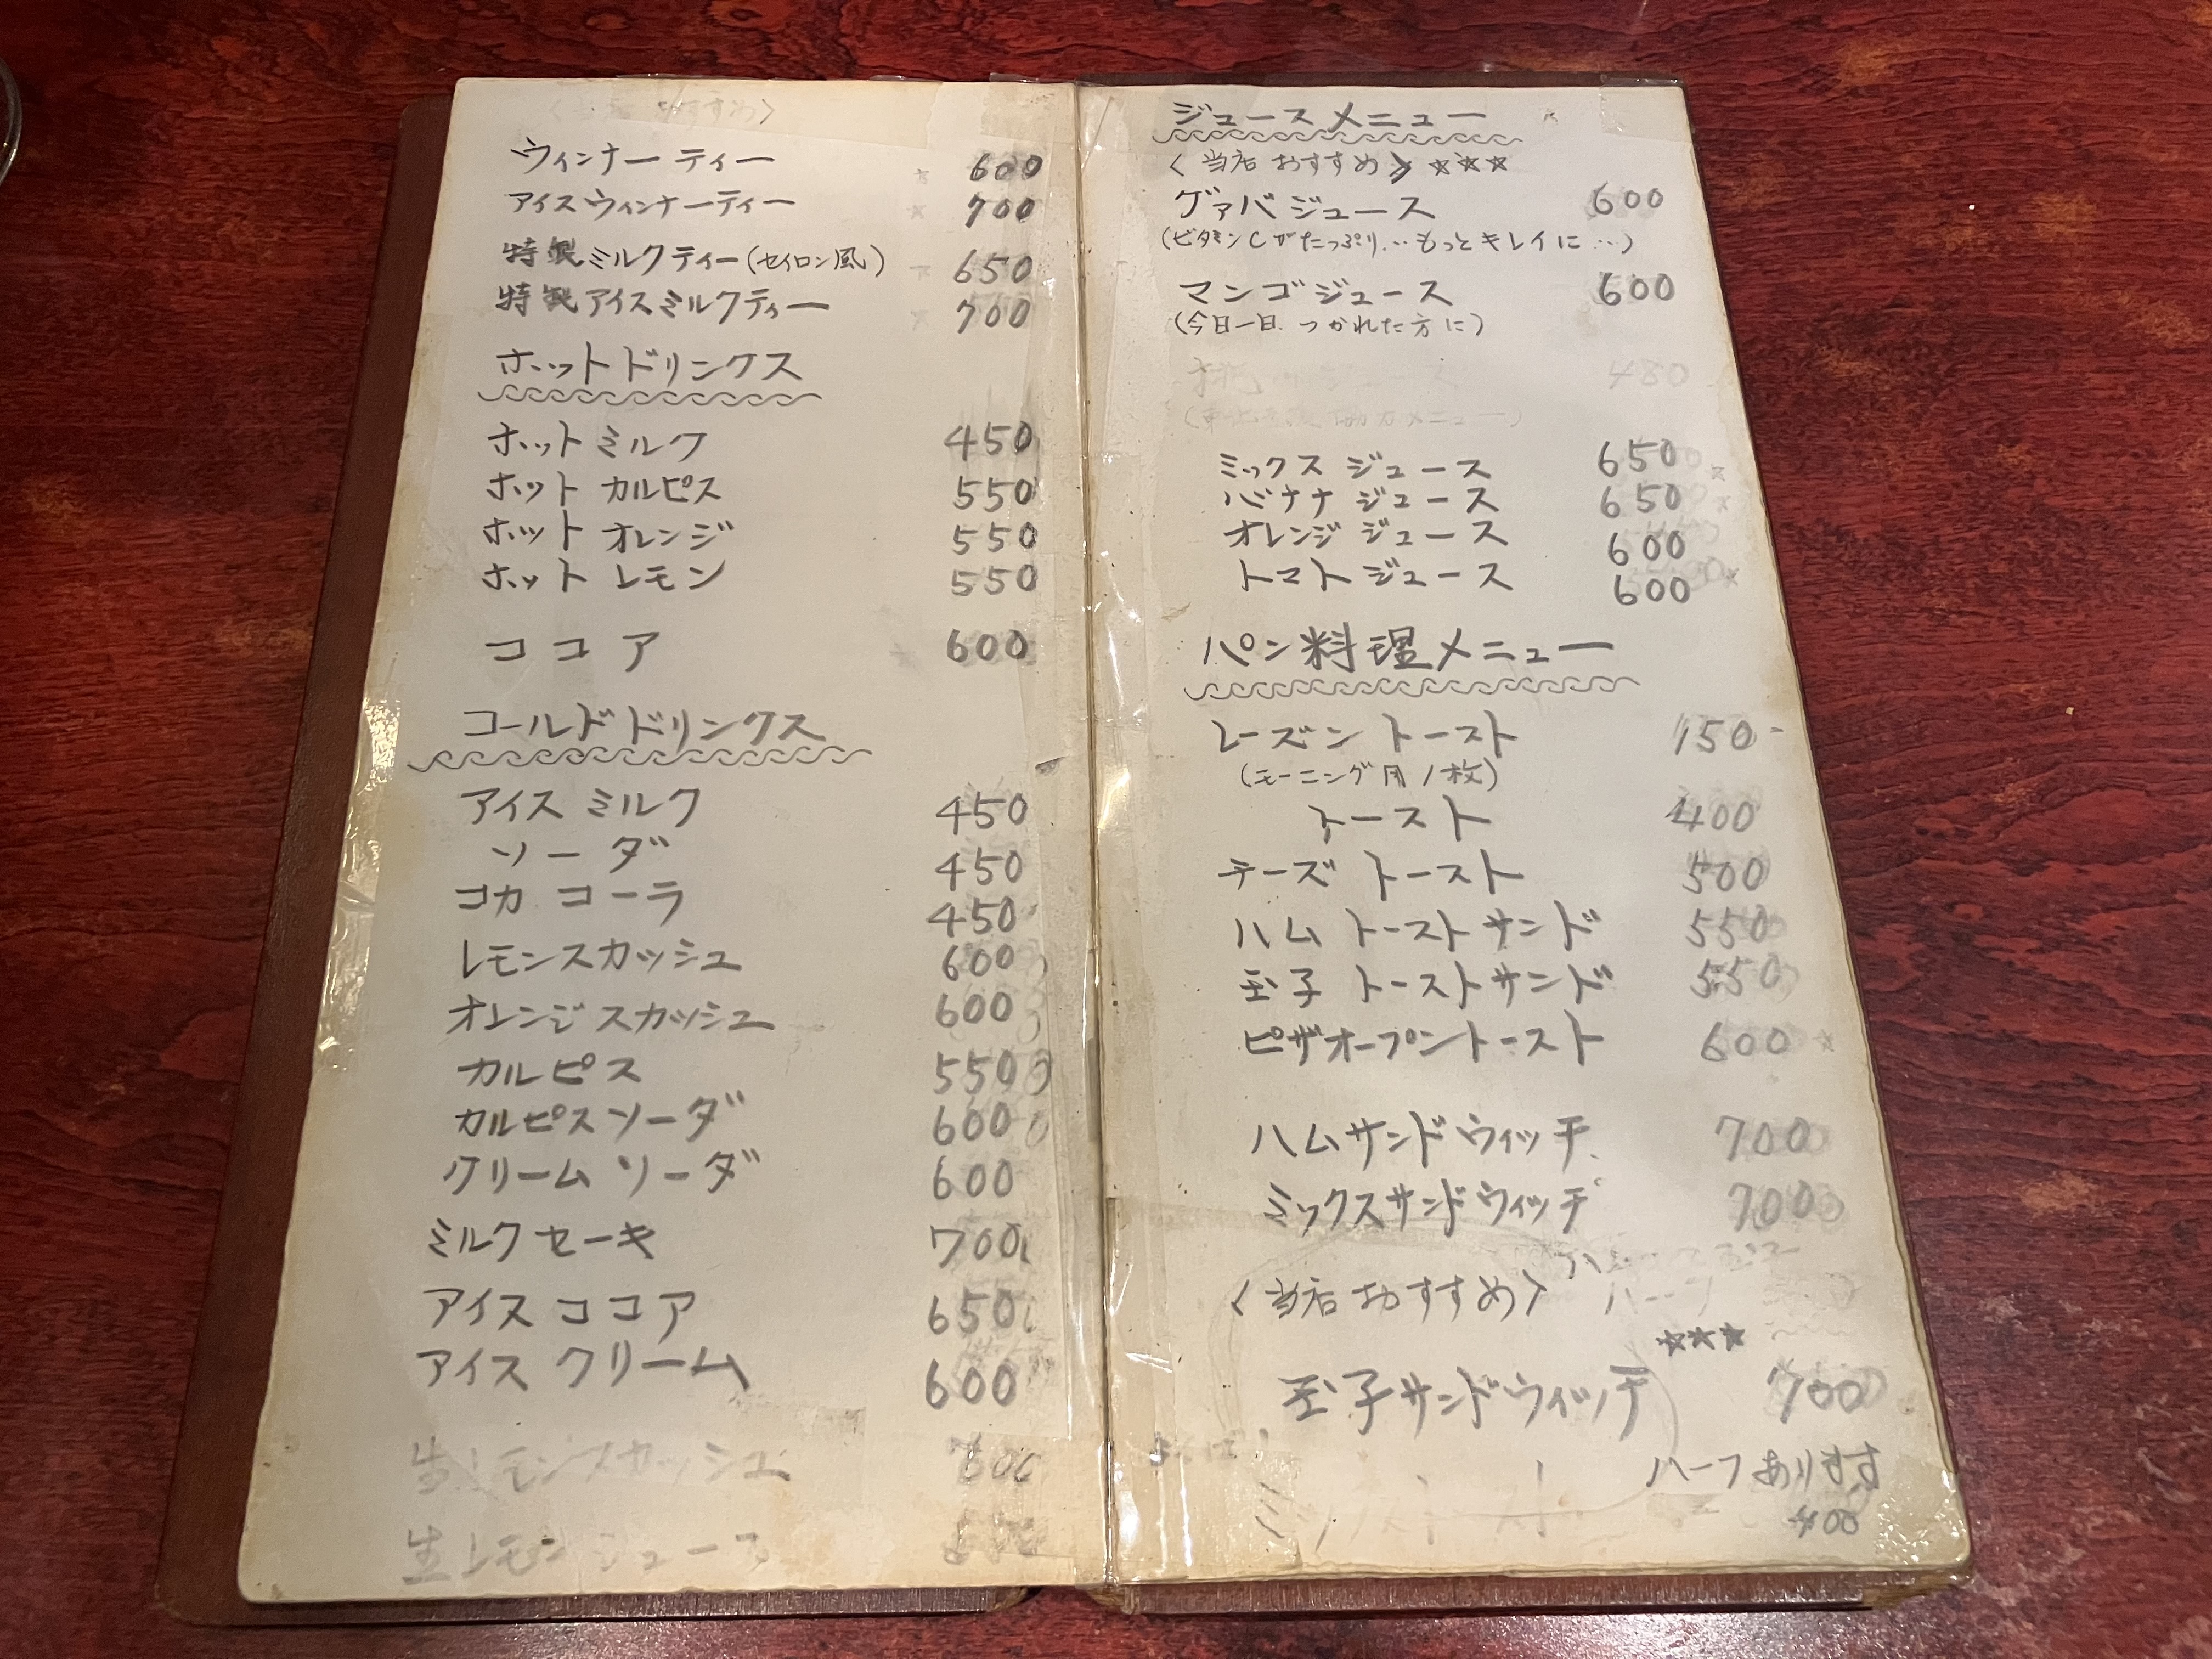 〈当店 おすすめ〉
ウィンナー ティー 600
アイスウィンナーティー 700
特製ミルクティー(セイロン風) 650
特製アイスミルクティー 700
ホットドリンクス
ホット ミルク 450
ホット カルピス 550
ホット オレンジ 550
ホット レモン 550
ココア 600
コールドドリンクス
アイス ミルク 450
ソーダ 450
コカ コーラ 450
レモンスカッシュ 600
オレンジスカッシュ 600
カルピス 550
カルピスソーダ 600
クリーム ソーダ 600
ミルクセーキ 700
アイス ココア 650
アイス クリーム 600
生レモンスカッシュ
生レモンジュース
ジュースメニュー
〈当店 おすすめ〉☆☆☆
グァバジュース 600
(ビタミンCがたっぷり…もっとキレイに…)
マンゴジュース 600
(今日一日、つかれた方に)
480
ミックス ジュース 650
バナナ ジュース 650
オレンジ ジュース 600
トマトジュース 600
パン料理メニュー
レーズン トースト 150-
(モーニング用1枚)
トースト 400
チーズ トースト 500
ハム トーストサンド 550
玉子 トーストサンド 550
ピザオープントースト 600
ハムサンドウィッチ 700
ミックスサンドウィッチ 700
〈当店おすすめ〉 ハーフ
☆☆☆
玉子サンドウィッチ 700
ハーフあります
400